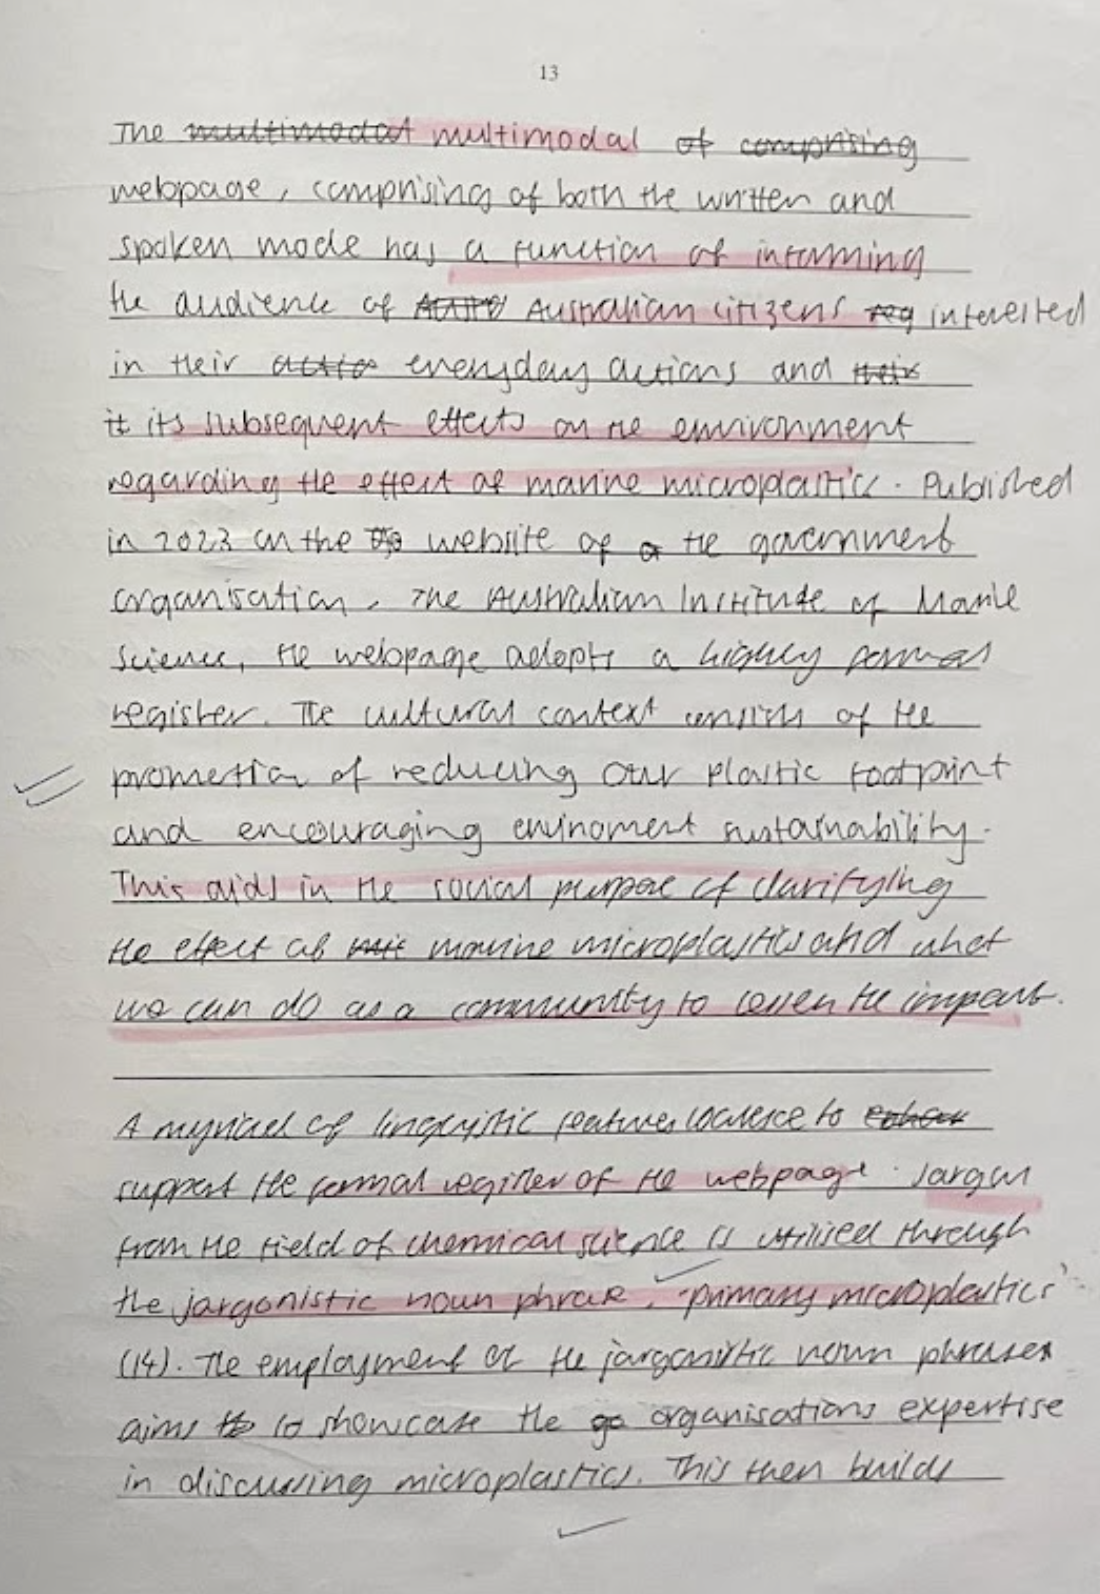 13
The multimodal multimodal of comprising
webpage, comprising of both the written and
spoken mode has a function of informing
the audience of Australian citizens req interested
in their actio everyday actions and their
it its subsequent effects on the environment
regarding the effect of marine microplastics. Published
in 2023 on the website of a the government
organisation, The Australian Institute of Marine
Science, the webpage adopts a highly formal
register. The cultural context consists of the
promotion of reducing our plastic footprint
and encouraging envinoment sustainability.
This aids in the social purpose of clarifying
the effect of mic marine microplastics and what
we can do as a community to lessen the impact.
A myriad of linguistic features coalesce to
support the formal register of the webpage. Jargon
from the field of chemical science is utilised through
the jargonistic noun phrase, 'primary microplastics'
(14). The employment of the jargonistic noun phrases
aims to to showcase the go organisations expertise
in discussing microplastics. This then builds